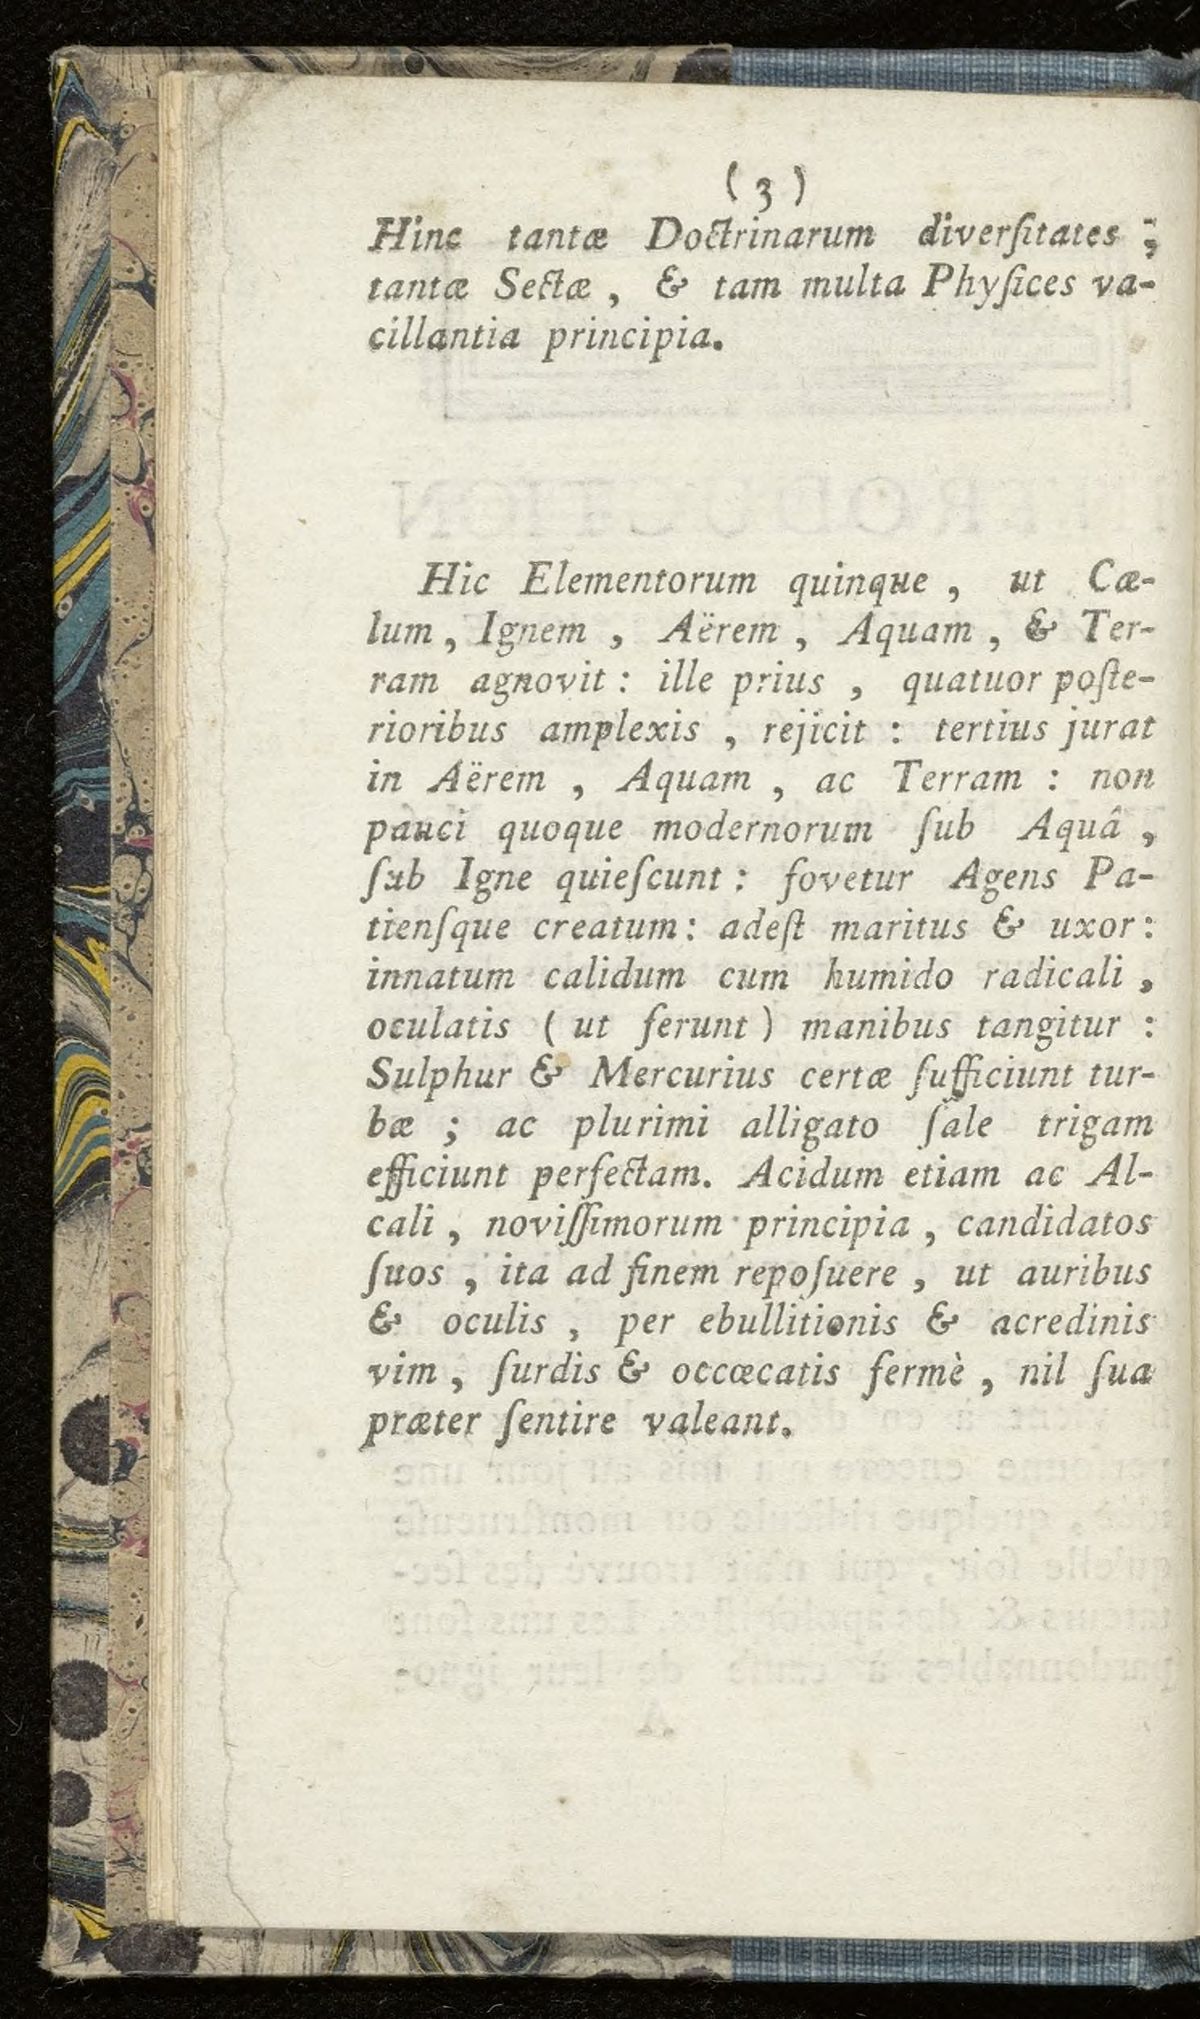 ( 3 )
Hinc tantæ Doctrinarum diverſitates ;
tantæ Sectæ , & tam multa Phyſices va-
cillantia principia.
Hic Elementorum quinque , ut Cæ-
lum , Ignem , Aërem , Aquam , & Ter-
ram agnovit : ille prius , quatuor poſte-
rioribus amplexis , rejicit : tertius jurat
in Aërem , Aquam , ac Terram : non
pauci quoque modernorum ſub Aquâ ,
ſub Igne quieſcunt : fovetur Agens Pa-
tienſque creatum : adeſt maritus & uxor :
innatum calidum cum humido radicali ,
oculatis ( ut ferunt ) manibus tangitur :
Sulphur & Mercurius certæ ſufficiunt tur-
bæ ; ac plurimi alligato ſale trigam
efficiunt perfectam. Acidum etiam ac Al-
cali , noviſſimorum principia , candidatos
ſuos , ita ad finem repoſuere , ut auribus
& oculis , per ebullitionis & acredinis
vim , ſurdis & occœcatis fermè , nil ſua
præter ſentire valeant.